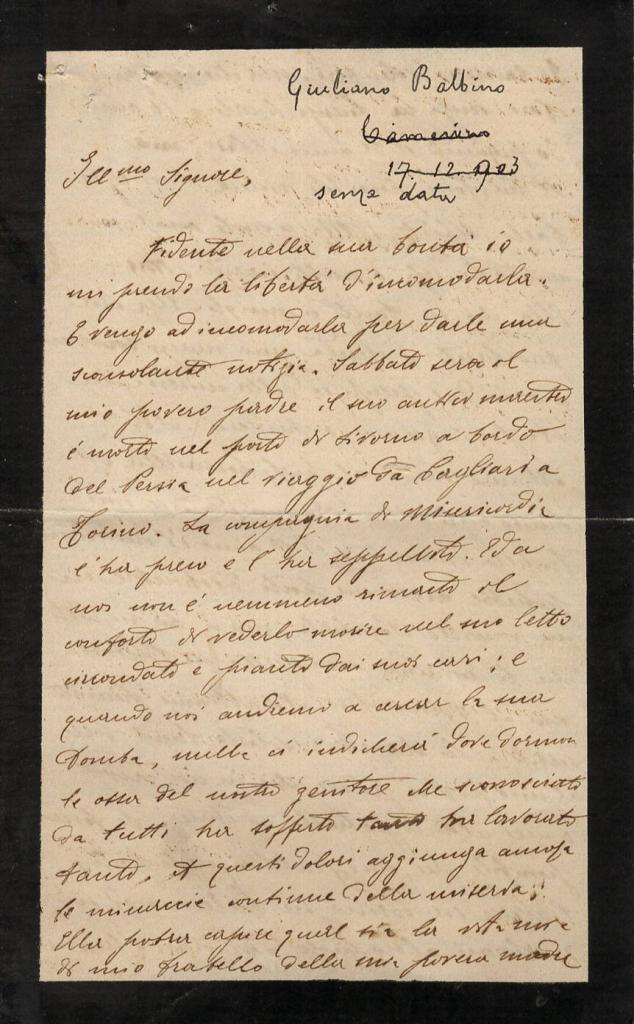 Giuliano Balbino
Camerino
17.12.903
senza data
Ill.mo Signore,
Fidente nella sua bontà io
mi prendo la libertà d'incomodarla.
E vengo ad incomodarla per darle una
sconsolante notizia. Sabbato sera il
mio povero padre il suo antico
è morto nel porto di Livorno a bordo
del Persia nel viaggio da Cagliari a
Torino. La compagnia di Misericordia
l'ha preso e l'ha seppellito. Ed a
noi non è nemmeno rimasto il
conforto di vederlo morire nel suo letto
circondato e pianto dai suoi cari; e
quando noi andremo a cercar la sua
tomba, nulla ci indicherà dove dormon
le ossa del nostro genitore che sconosciuto
da tutti ha sofferto tanto ha lavorato
tanto. A questi dolori aggiunga ancora
le minaccie continue della miseria;
Ella potrà capire qual sia la vita mia
di mio fratello della mia povera madre